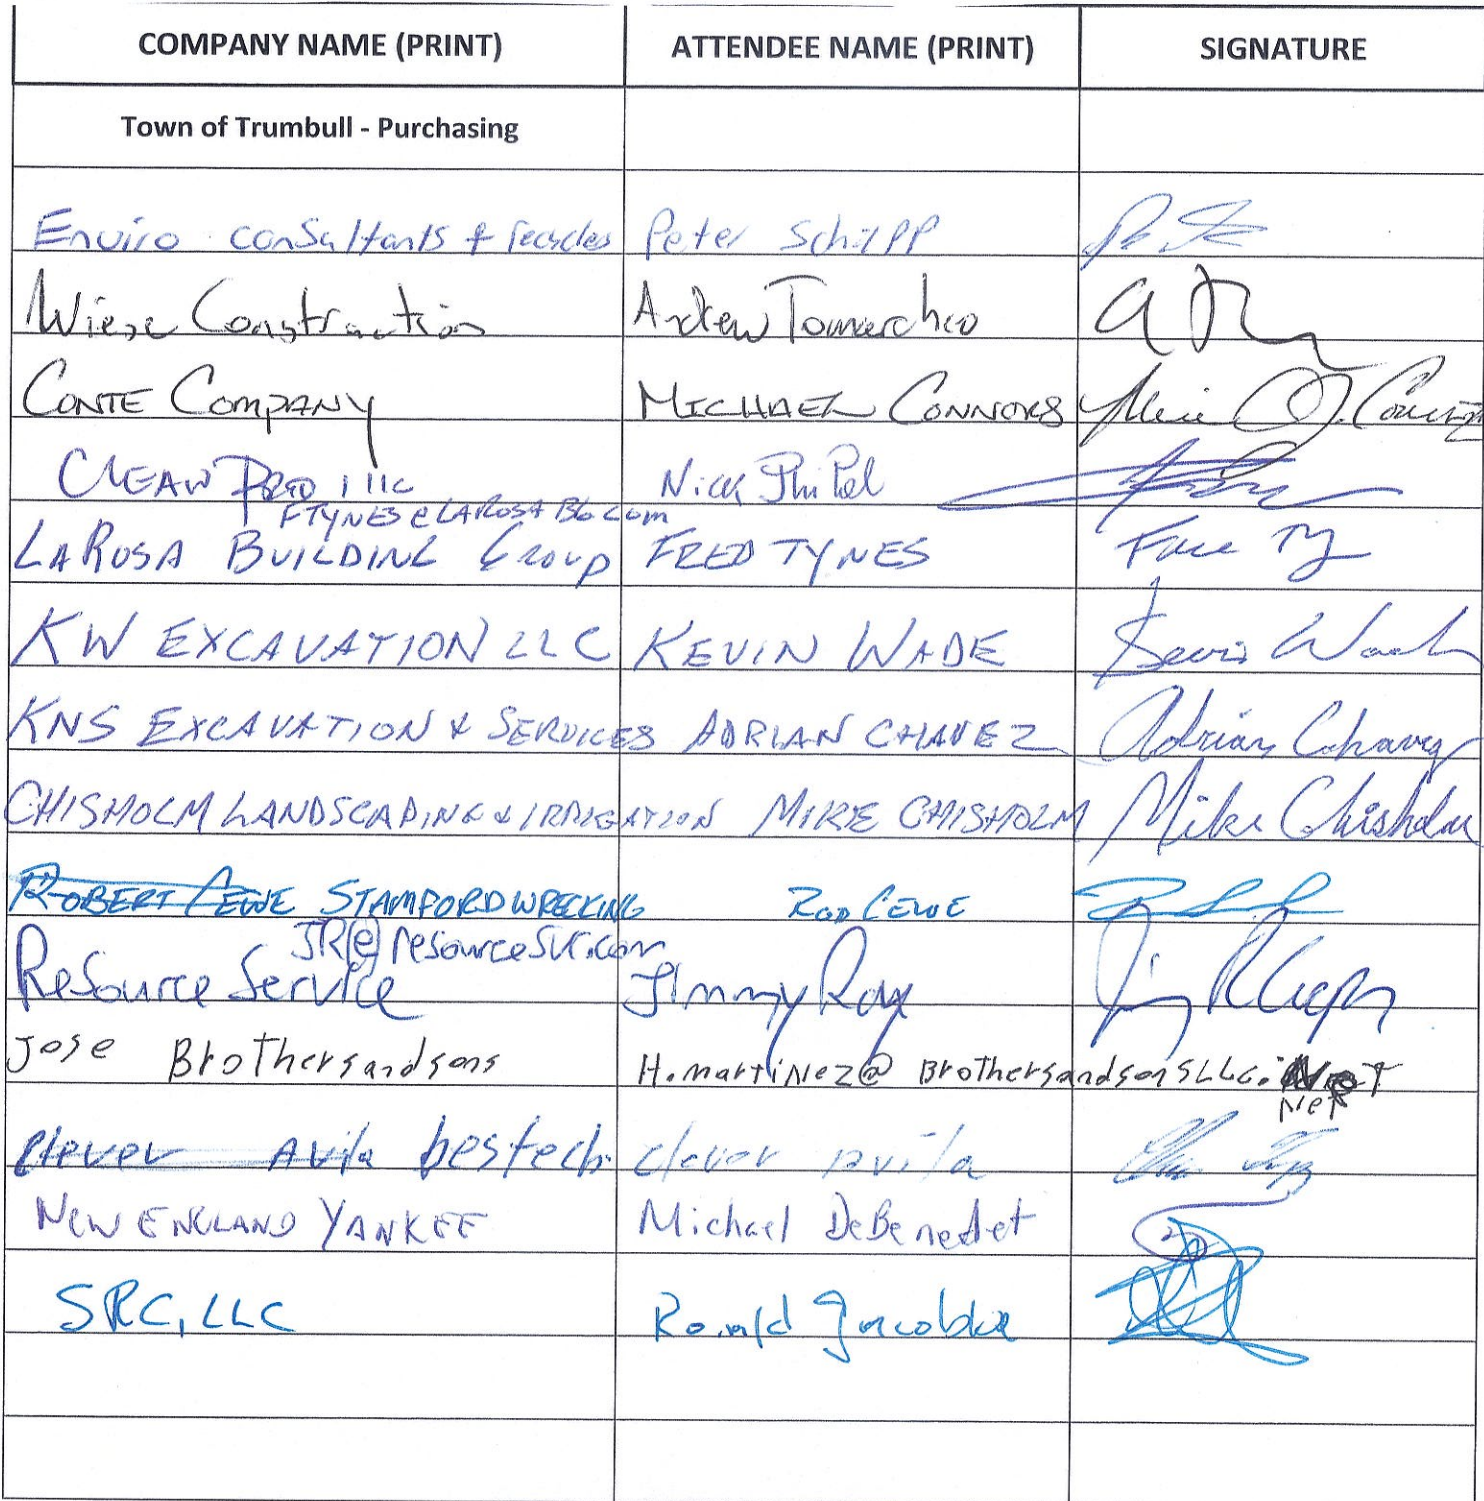 COMPANY NAME (PRINT) ATTENDEE NAME (PRINT) SIGNATURE
Town of Trumbull - Purchasing
Enviro consultants + Peter Schipp
Wiese Construction Andrew Tomarchio
CONTE COMPANY MICHAEL CONNORS
CLEAN PRO LLC Nick
FTYNES@LAROSABG.COM
LAROSA BUILDING Group FRED TYNES
KW EXCAVATION LLC KEVIN WADE Kevin Wade
KNS EXCAVATION & SERVICES ADRIAN CHAVEZ Adrian Chavez
CHISHOLM LANDSCAPING & IRRIGATION MIKE CHISHOLM Mike Chisholm
ROBERT CEWE STAMFORD WRECKING ROD CEWE
JR@resourcesvc.com
Resource Service Jimmy Ray
Jose Brothersandsons H.martiNez@BrothersandsonsLLC.
Net
clever Avila bestech clever avila
NEW ENGLAND YANKEE Michael DeBenedet
SRC, LLC Ronald